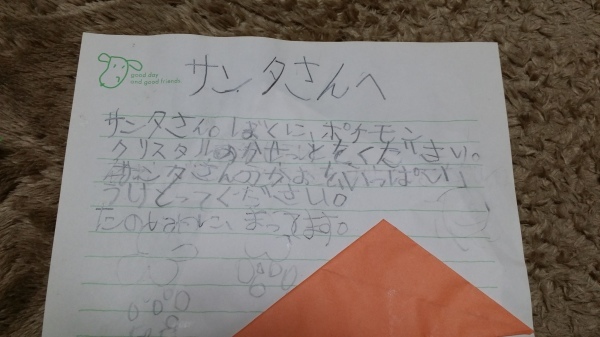 good day
and good friends
サンタさんへ
サンタさん。ぼくに、ポケモン
クリスタルのかせっとをください。
サンタさんのかおをいっぱい
うけとってください。
たのしみに、まってます。